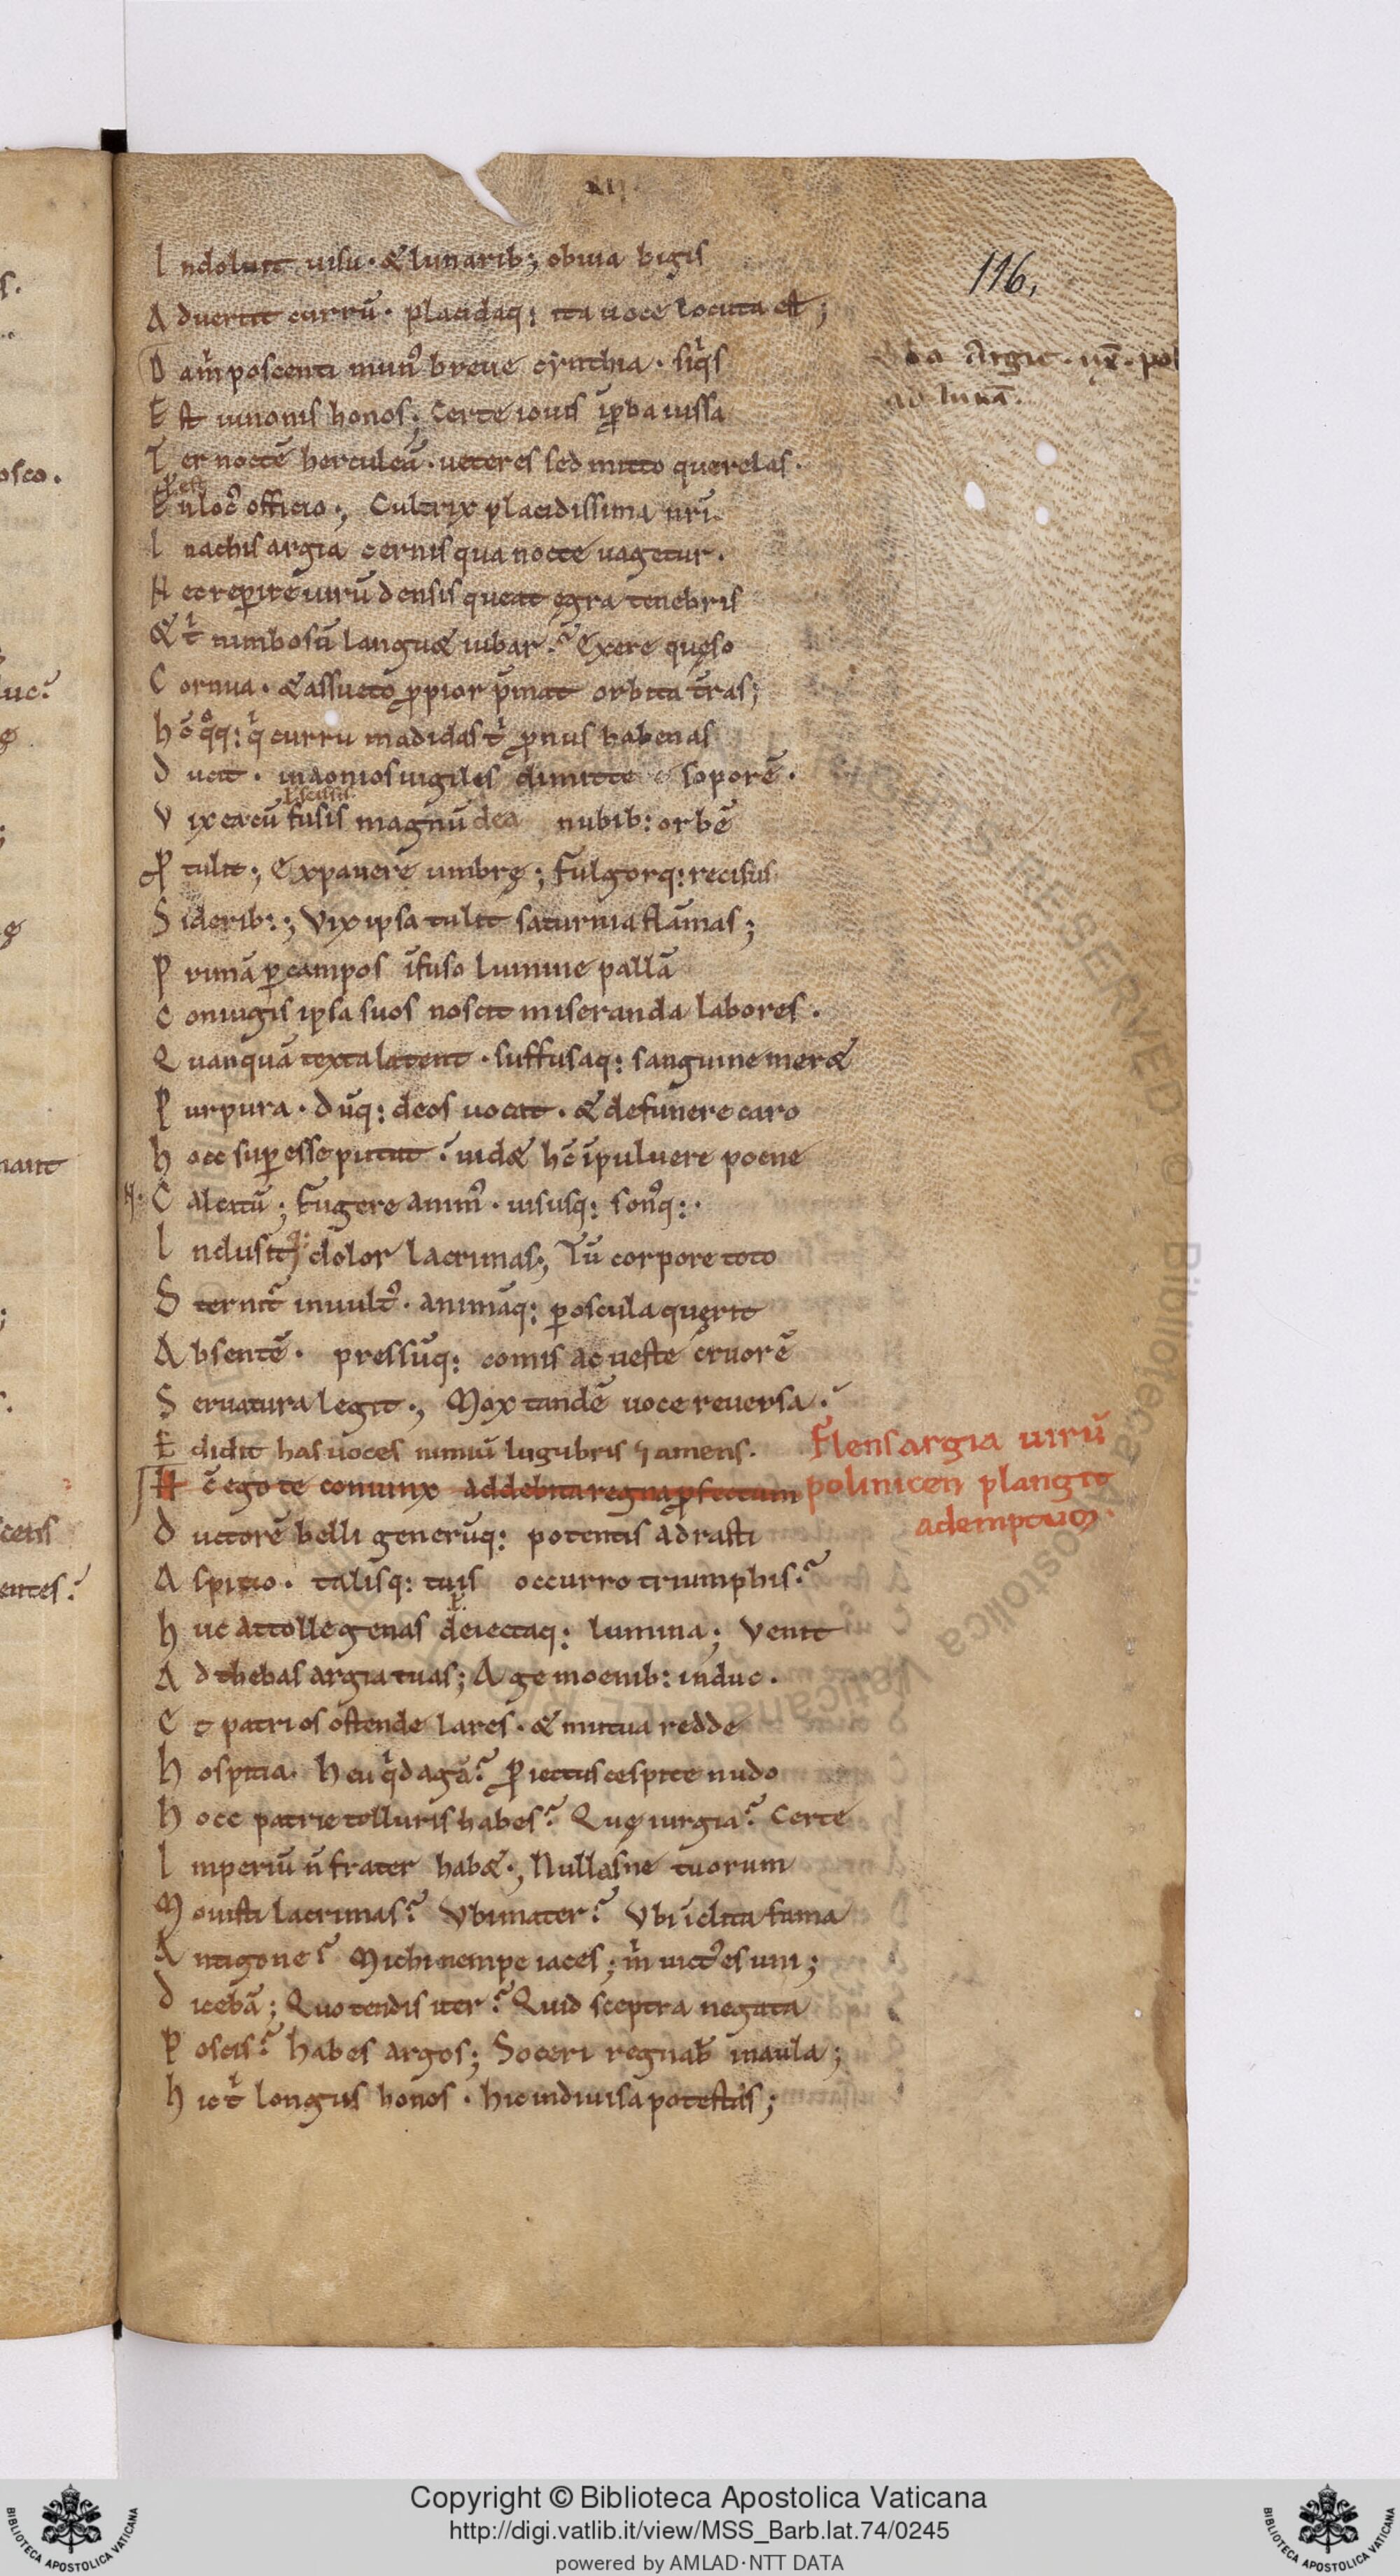 XII
116.
Indoluit visu · & lunarib; obuia bigis
Aduertit currū · placidaq: ita uoce locuta est ;
Da m̍ poscenti mun᷒ breue cynthia · siq̍s
Est iunonis honos ; Certe iouis īp̱ba iussa
Ter noctē herculeā · ueteres sed mitto querelas ·
En loc᷒ officio ; Cultrix placidissima nr̄i
Inachis argia cernis qua nocte uagetur ·
Nec rep̱ire uirū densis queat ęgra tenebris
& t̍ nimbosū langu& iubar ? Exere quęso
Cornua · & assueto ꝓpior p̄mat orbita t̄ras ;
hc̄ q̊q: q̍ curru madidas t̍ ꝓnus habenas
Ducit · in aonios uigiles dimitte soporē ·
p̱scissis
Vix ea cū fusis magnū dea nubib: orbē
Ꝓtulit ; Expauere umbrę ; Fulgorq: recisus
Siderib: ; Vix ipsa tulit saturnia flāmas ;
Primā p̱ campos īfuso lumine pallā
Coniugis ipsa suos noscit miseranda labores ·
Quanquā texta latent · suffusaq: sanguine mer&
Purpura · dūq: deos uocat · & de funere caro
hocc sup̱esse putat ; uid& hc̄ ī puluere poene
N · Calcatū ; Fugere anim᷒ · uisusq: son᷒q: ·
Indusitq: dolor lacrimas ; Tū corpore toto
Sternit᷑ in uult᷒ · animāq: p̱ oscula quęrit
Absentē · pressūq: comis ac ueste cruorē
Seruatura legit ; Mox tandē uoce reuersa ·
Edidit has uoces nimiū lugubris ⁊ amens ·
Flens argia uirū
Hc̄ ego te coniunx ad debita regna ꝓfectum
polinicen plangit
Ductorē belli generūq: potentis adrasti
ademptum ·
Aspicio · talisq: tuis occurro triumphis ?
huc attolle genas deiectaq: lumina ; Venit
Ad thebas argia tuas ; Age moenib: induc ·
Et patrios ostende lares · & mutua redde
hospitia · heu q̍d agā ? Ꝓiectus cespite nudo
hocc patrie telluris habes ? Quę iurgia ? Certe
Imperiū n̄ frater hab& ; Nullasne tuorum
Mouisti lacrimas ? Vbi mater ? Vbi īclita fama
Antigone ? Michi nempe iaces ; m̍ uict᷒ es uni ;
Dicebā ; Quo tendis iter ? Quid sceptra negata
Poscis ? habes argos ; Soceri regnab̄ in aula ;
hic t̍ longus honos · hic indiuisa potestas ;
Argie · ux̄ · pol
ad lunā ·
osco ·
Copyright © Biblioteca Apostolica Vaticana
http://digi.vatlib.it/view/MSS_Barb.lat.74/0245
powered by AMLAD·NTT DATA
BIBLIOTECA APOSTOLICA VATICANA
BIBLIOTECA APOSTOLICA VATICANA